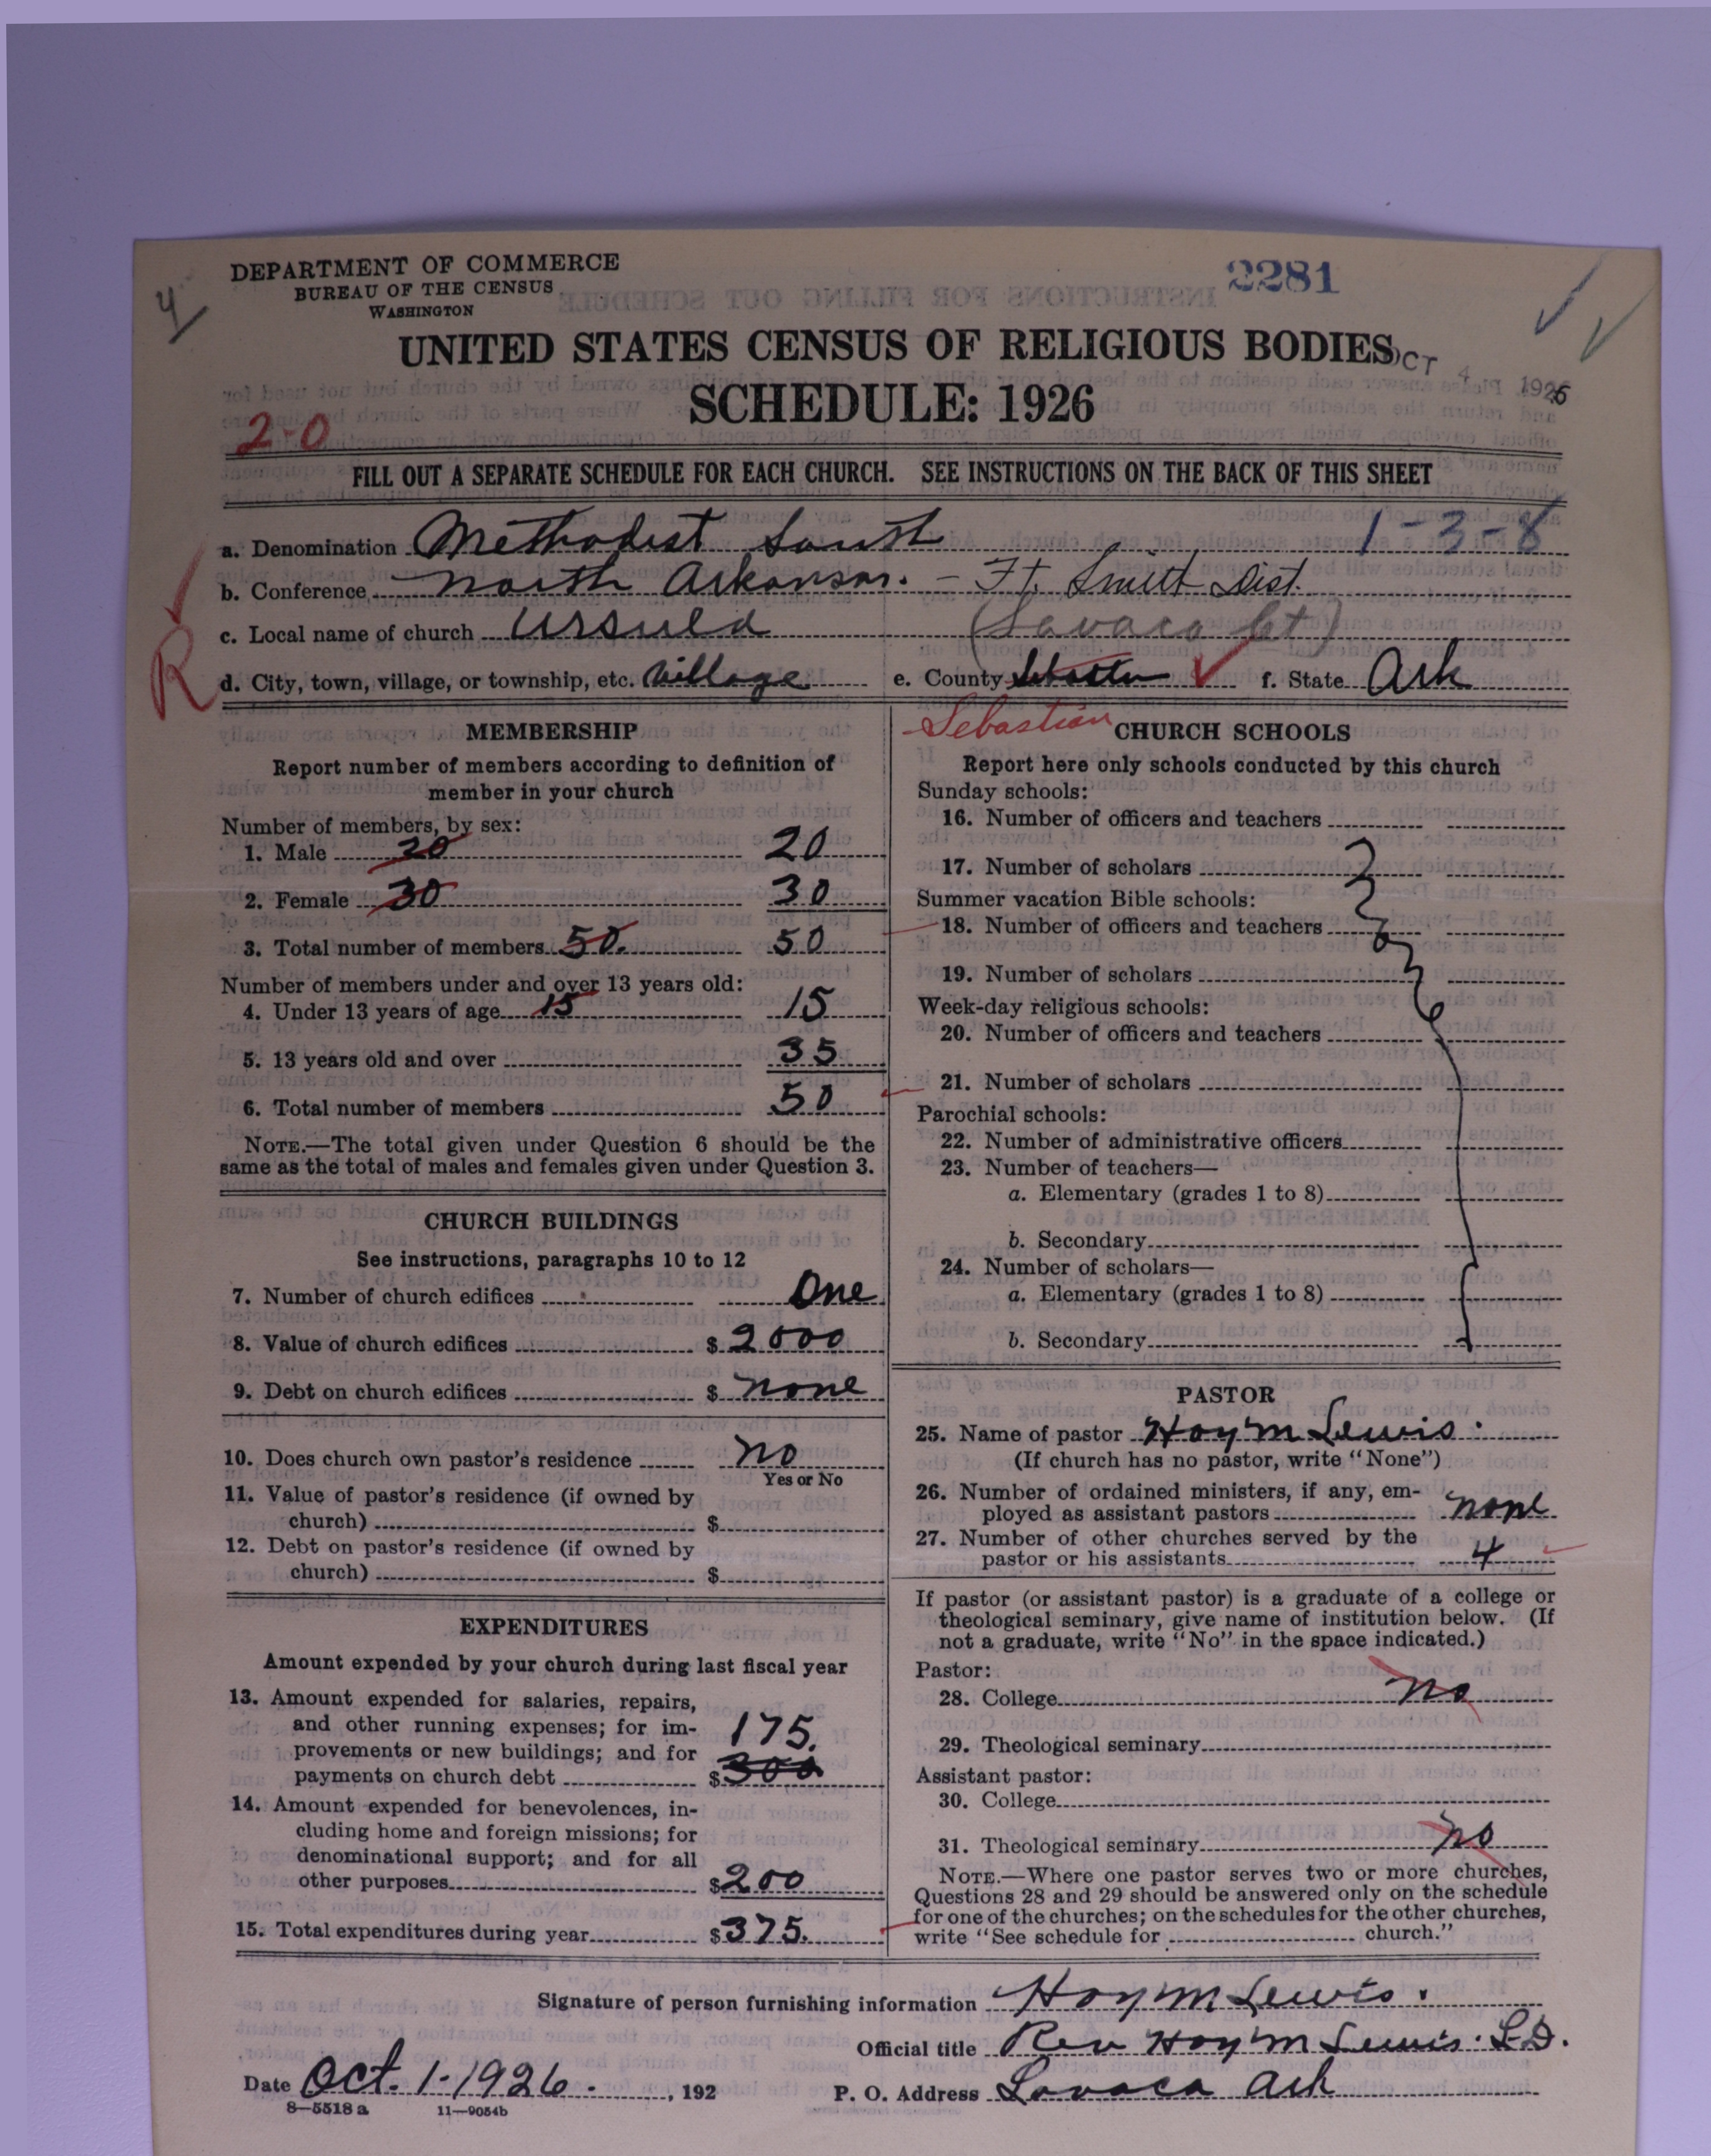 DEPARTMENT OF COMMERCE
BUREAU OF THE CENSUS
WASHINGTON
2281
4
UNITED STATES CENSUS OF RELIGIOUS BODIES
OCT 4 1926
SCHEDULE: 1926
2-0
FILL OUT A SEPARATE SCHEDULE FOR EACH CHURCH. SEE INSTRUCTIONS ON THE BACK OF THIS SHEET
a. Denomination Methodist South 1-3-8
b. Conference North Arkansas. - Ft. Smith Dist.
c. Local name of church Ursula (Lavaca Ct)
R
d. City, town, village, or township, etc. Village e. County f. State Ark
Sebastian
MEMBERSHIP
Report number of members according to definition of
member in your church
Number of members, by sex:
1. Male 20 20
2. Female 30 30
3. Total number of members 50. 50
Number of members under and over 13 years old:
4. Under 13 years of age 15 15
5. 13 years old and over 35
6. Total number of members 50
NOTE.—The total given under Question 6 should be the
same as the total of males and females given under Question 3.
CHURCH BUILDINGS
See instructions, paragraphs 10 to 12
7. Number of church edifices One
8. Value of church edifices $ 2000
9. Debt on church edifices $ none
10. Does church own pastor's residence No
Yes or No
11. Value of pastor's residence (if owned by
church) $
12. Debt on pastor's residence (if owned by
church) $
EXPENDITURES
Amount expended by your church during last fiscal year
13. Amount expended for salaries, repairs,
and other running expenses; for im-
provements or new buildings; and for
175.
payments on church debt $ 300
14. Amount expended for benevolences, in-
cluding home and foreign missions; for
denominational support; and for all
other purposes $200
15. Total expenditures during year $375.
CHURCH SCHOOLS
Report here only schools conducted by this church
Sunday schools:
16. Number of officers and teachers
17. Number of scholars
Summer vacation Bible schools:
18. Number of officers and teachers
19. Number of scholars
Week-day religious schools:
20. Number of officers and teachers
21. Number of scholars
Parochial schools:
22. Number of administrative officers
23. Number of teachers—
a. Elementary (grades 1 to 8)
b. Secondary
24. Number of scholars—
a. Elementary (grades 1 to 8)
b. Secondary
PASTOR
25. Name of pastor Hoy M Lewis.
(If church has no pastor, write "None")
26. Number of ordained ministers, if any, em-
ployed as assistant pastors none
27. Number of other churches served by the
pastor or his assistants 4
If pastor (or assistant pastor) is a graduate of a college or
theological seminary, give name of institution below. (If
not a graduate, write "No" in the space indicated.)
Pastor:
28. College no
29. Theological seminary
Assistant pastor:
30. College
31. Theological seminary no
NOTE.—Where one pastor serves two or more churches,
Questions 28 and 29 should be answered only on the schedule
for one of the churches; on the schedules for the other churches,
write "See schedule for church."
Signature of person furnishing information Hoy M Lewis.
Official title Rev Hoy M Lewis. L.D.
Date Oct. 1-1926. , 192 P. O. Address Lavaca Ark
8—5518 a 11—9054b